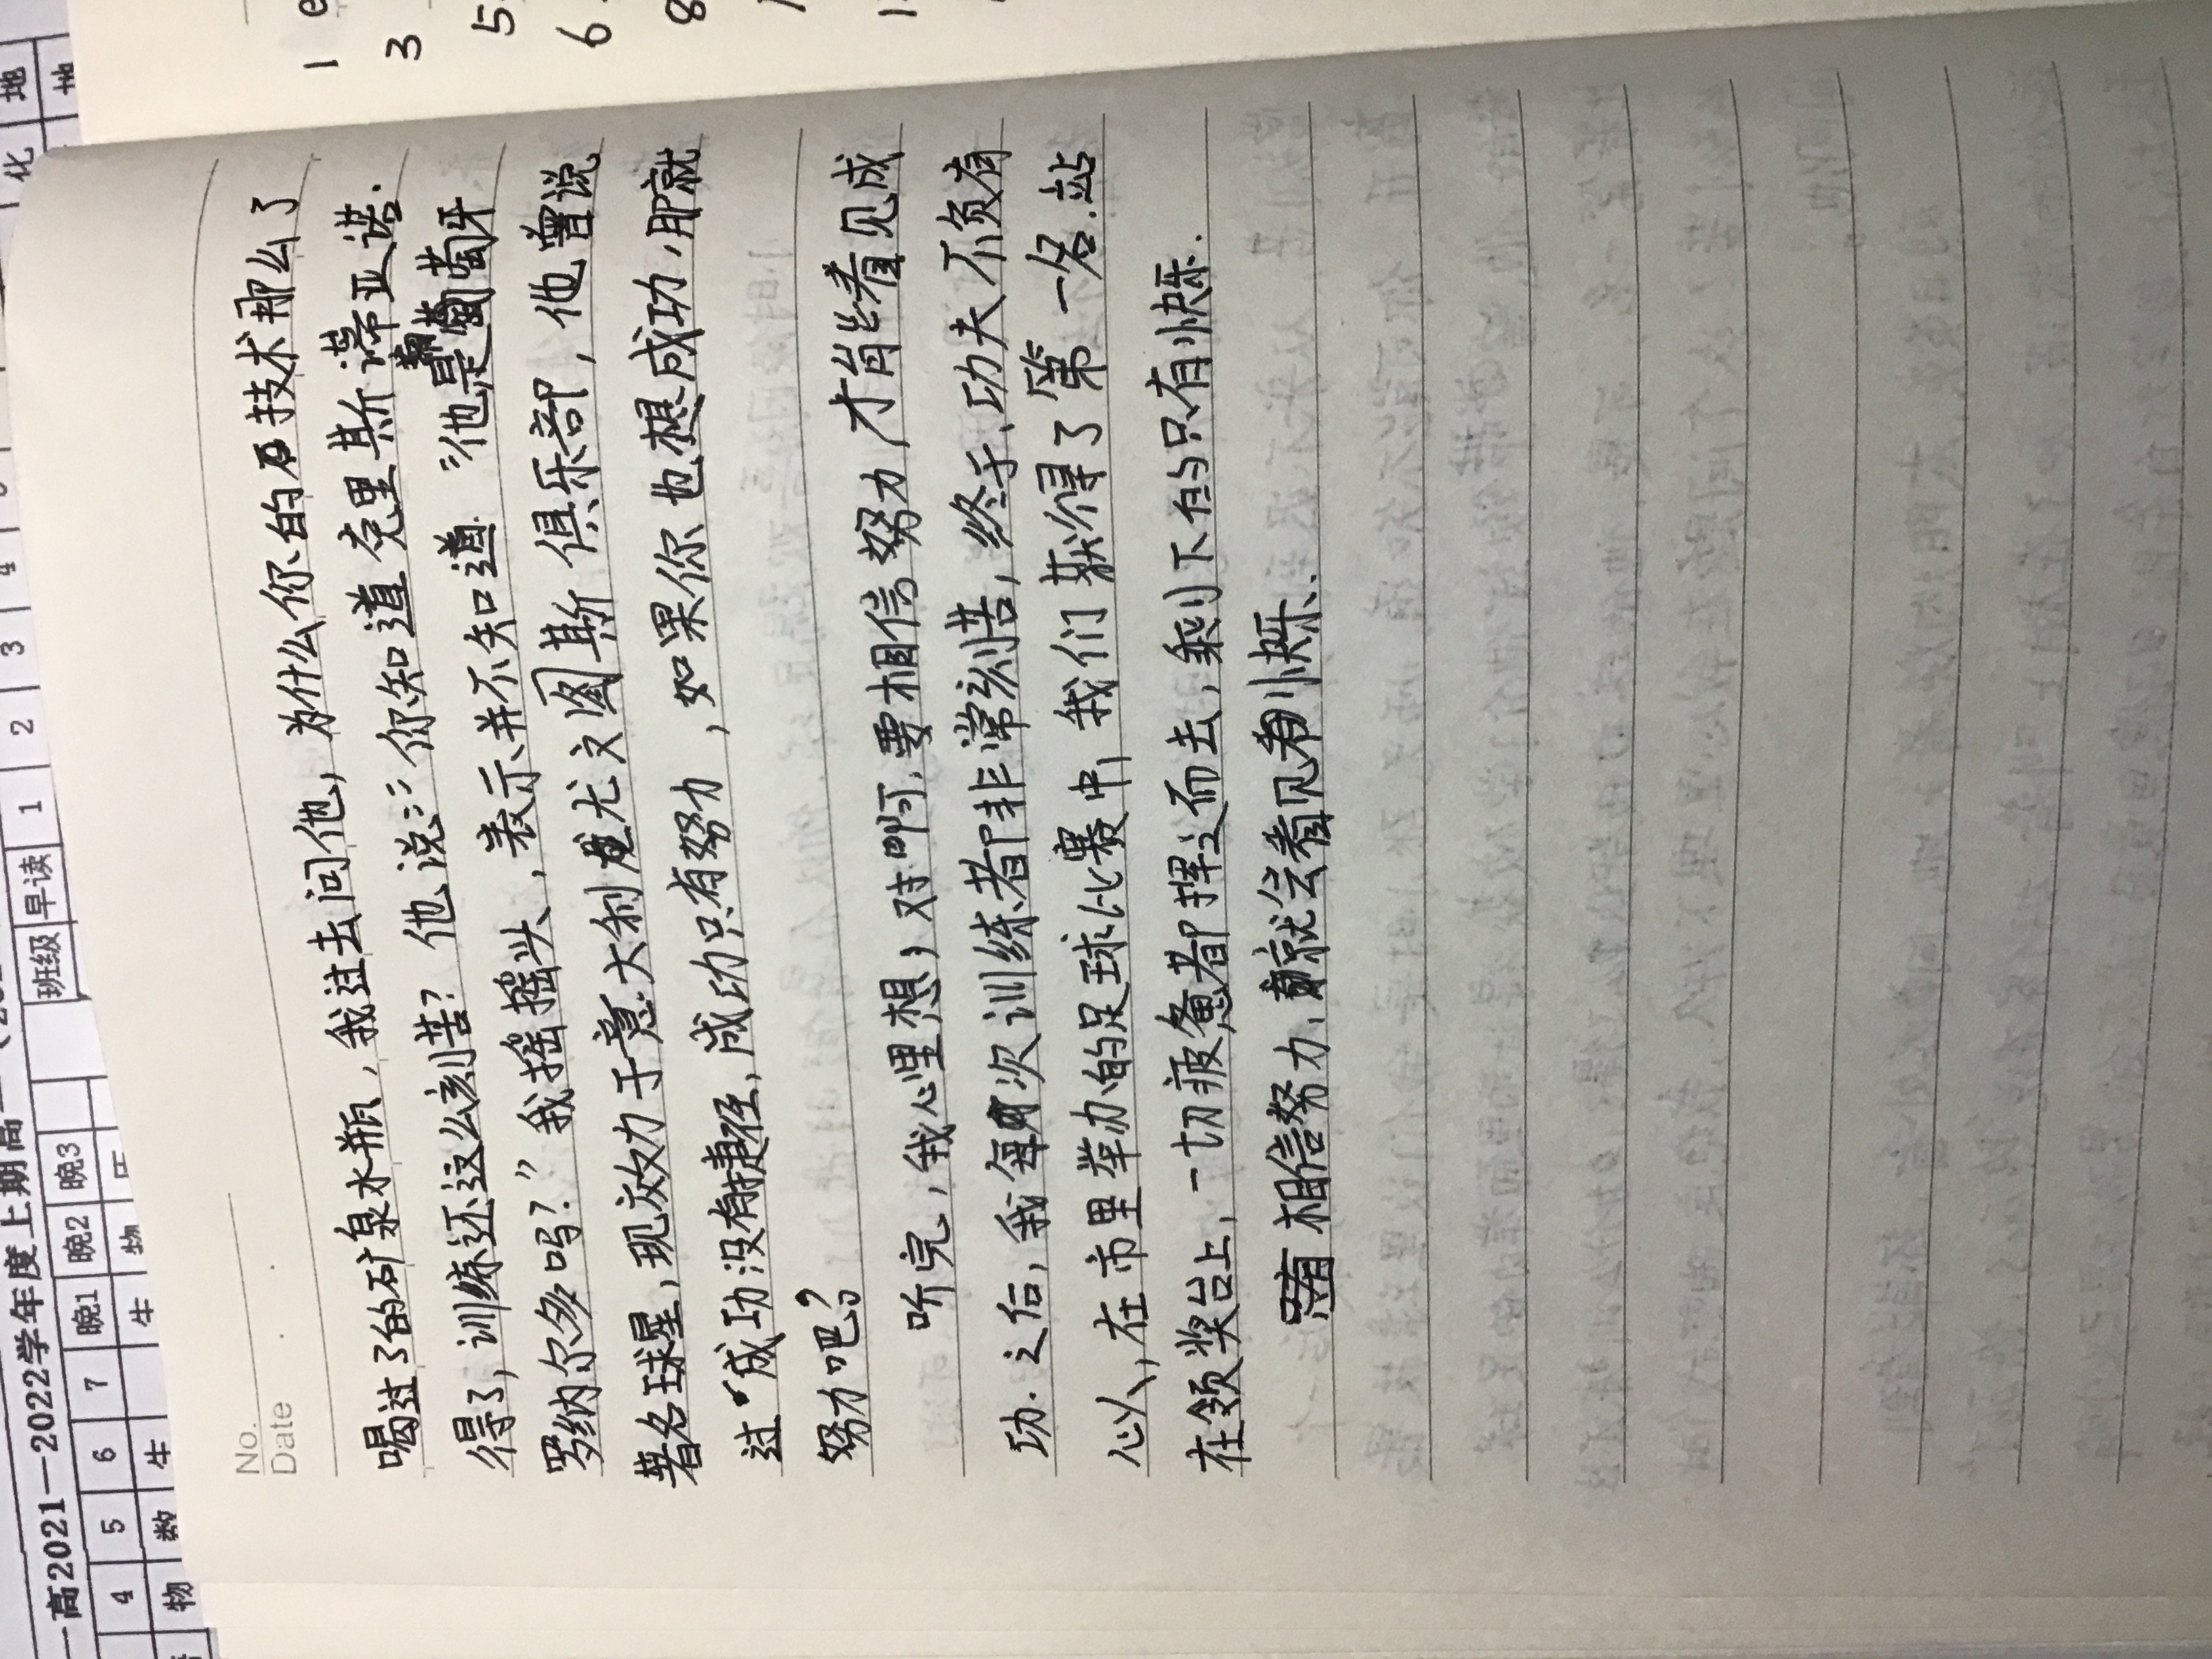 No.
Date
喝过了的矿泉水瓶，我过去问他，为什么你的技术那么了
得了，训练还这么刻苦？他说：“你知道克里斯蒂亚诺.
罗纳尔多吗？”我摇摇头，表示并不知道.“他是葡萄牙
著名球星，现效力于意大利尤文图斯俱乐部，他曾说
过“成功没有捷径，成功只有努力，如果你也想成功，那就
努力吧？
听完，我心里想，对啊，要相信努力才能看见成
功.之后，我每次训练都非常刻苦，终于，功夫不负有
心人，在市里举办的足球比赛中，我们获得了第一名.站
在领奖台上，一切疲惫都挥之而去，乘刂下的只有快乐.
相信努力，就会看见快乐.
一高2021—2022学年度上期高一
班级 早读 1 2 3 4
4 5 6 7 晚1 晚2 晚3
物 数 生 生 物
化 地
地
1 e
3
5
6
8